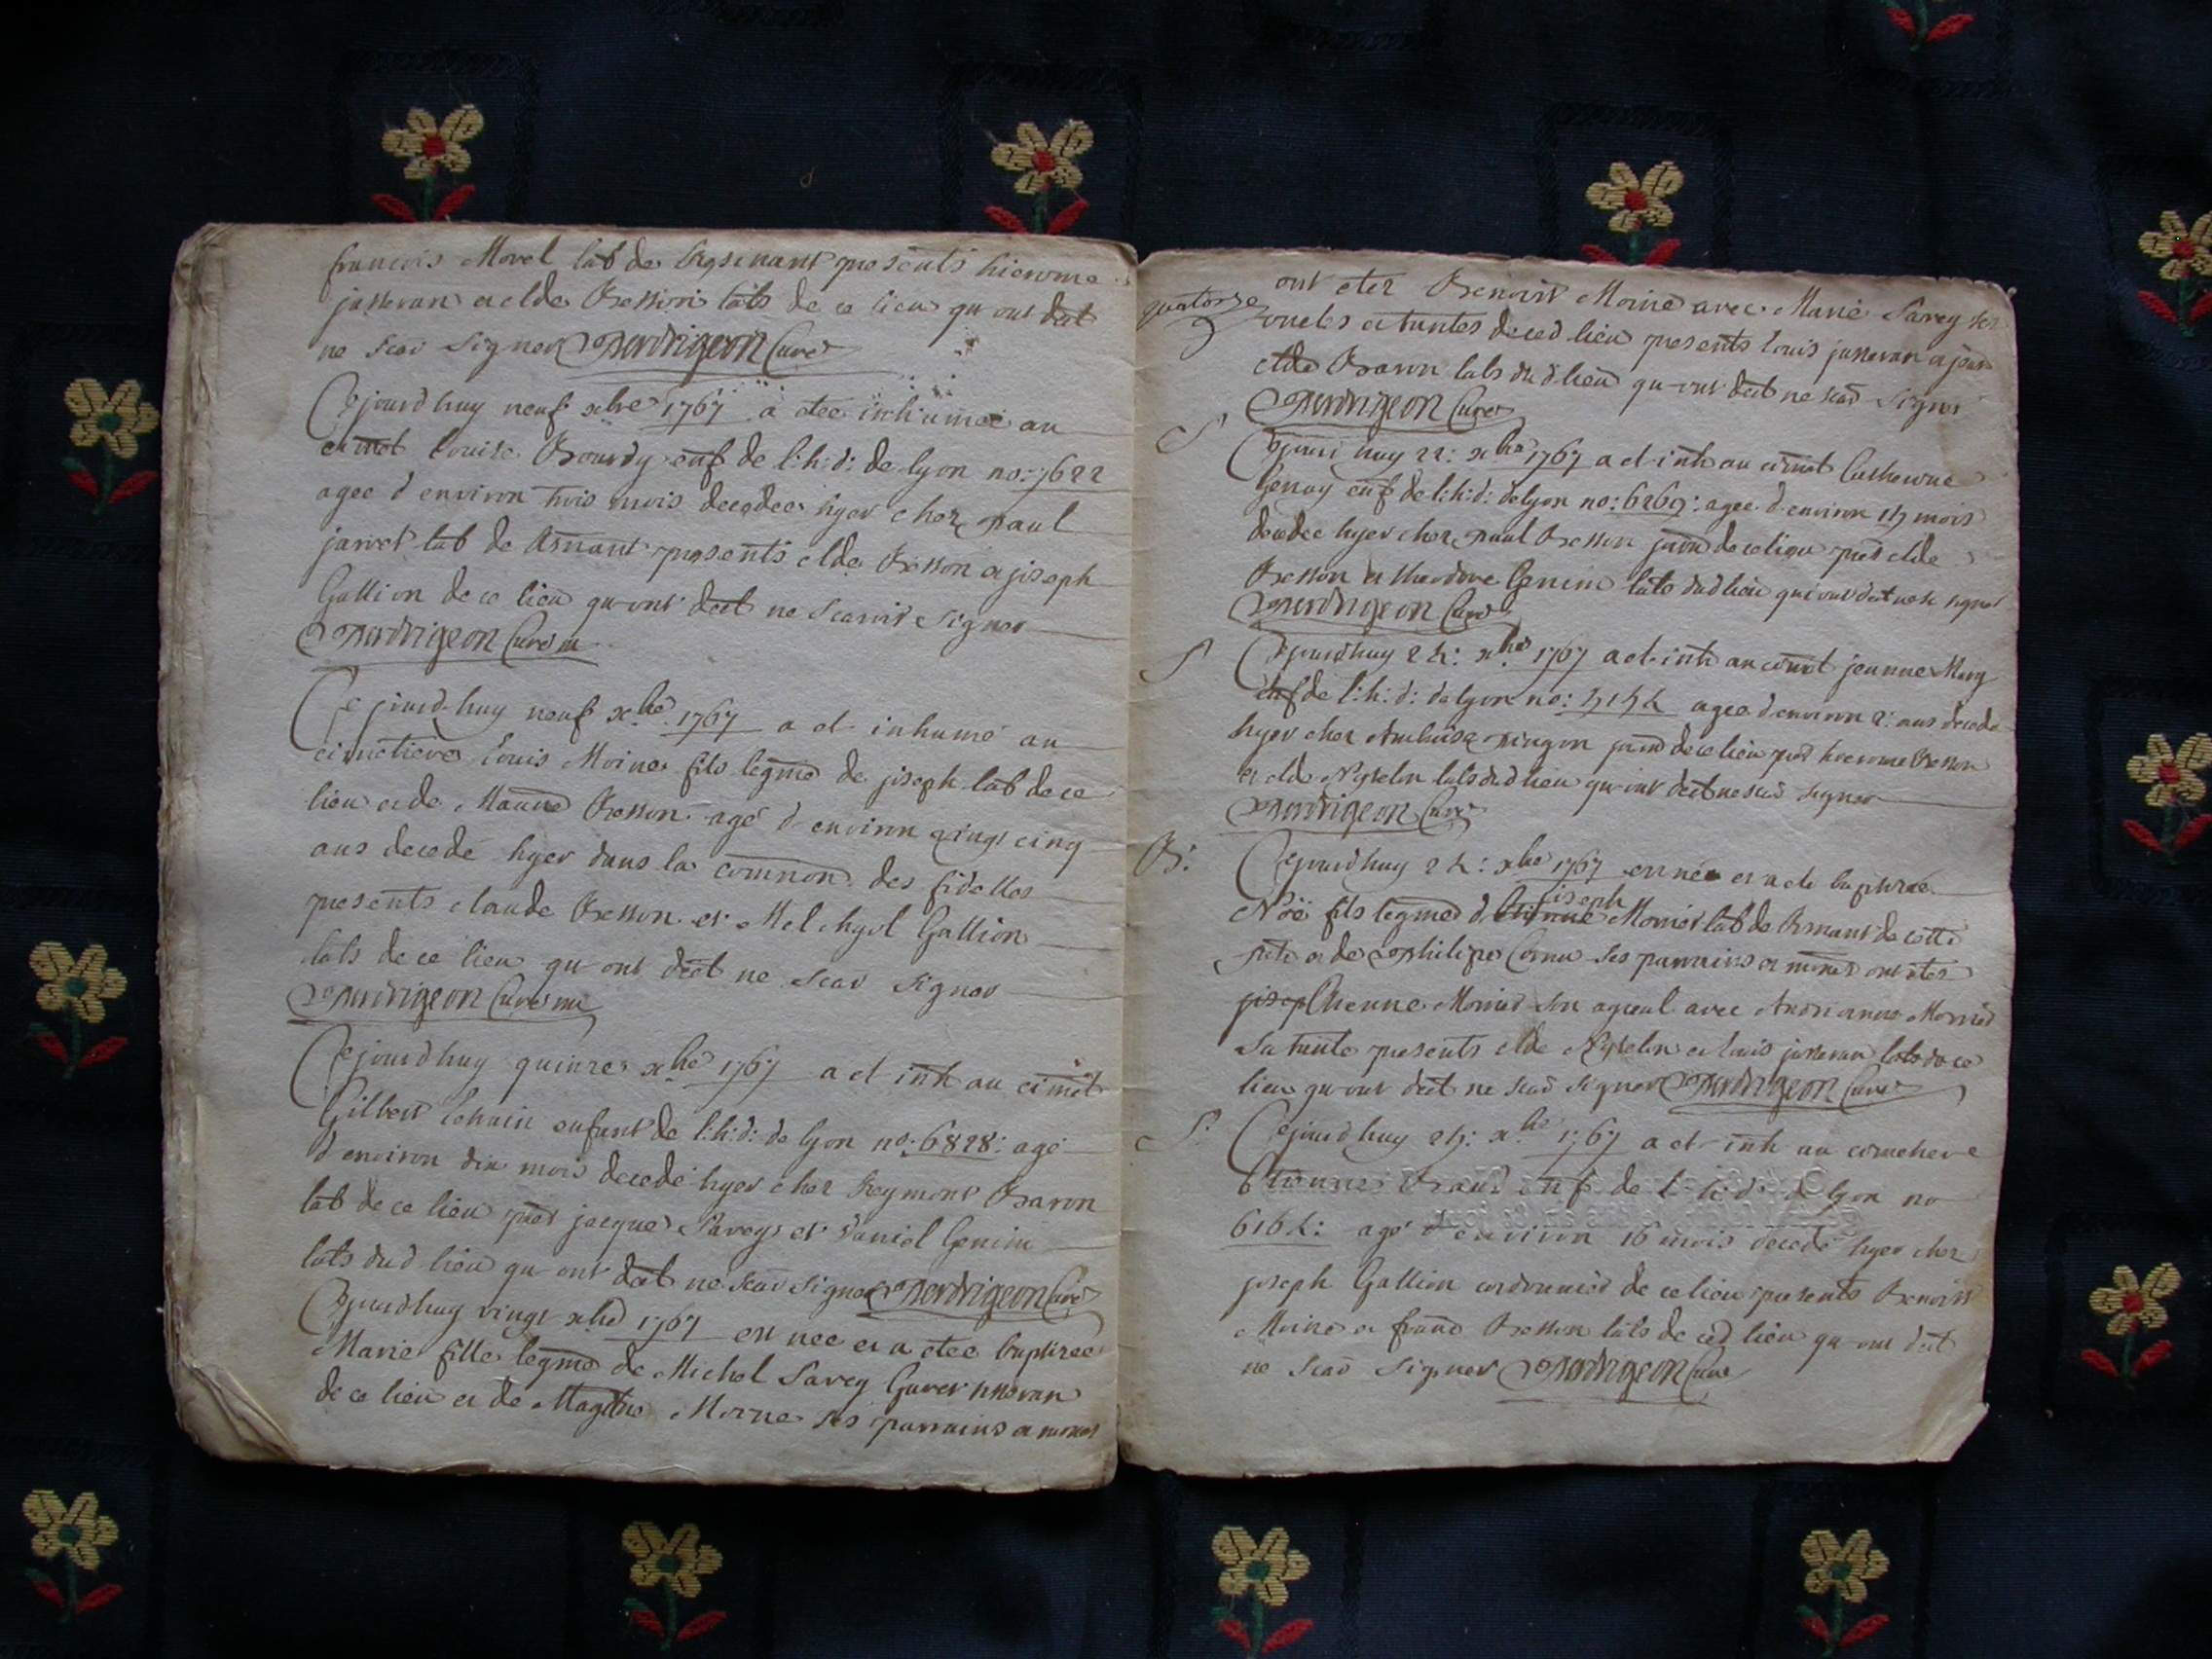 francois Morel lab de presents hierome
josseran et clde Besson labs de ce lieu qu ont dect
ne scav signer Perdrigeon Curé
Cejourd huy neuf xbre 1767 a etee inhumée au
cimet Louise Bourdy enf de l:h:d: de lyon no: 7622
agee d environ trois mois decedee hyer chez paul
janvet lab de presents clde Besson et joseph
Gallion de ce lieu qu ont dect ne scavoir signer
Perdrigeon Curé
Cejourd huy neuf xbre 1767 a et inhumé au
cimetiere Louis Moine fils legme de joseph lab de ce
lieu et de Besson agé d environ vingt cinq
ans decedé hyer dans la common des fidelles
presents claude Besson et Melchyol Gallion
labs de ce lieu qu ont dect ne scav signer
Perdrigeon Curé
Cejourdhuy quinze xbre 1767 a et inh au cimet
Gilbert enfant de l:h:d: de lyon no: 6828: agé
d environ dix mois decedé hyer chez Reymont Baron
lab de ce lieu pnts jacques Sarey et Daniel Genin
labs dud lieu qu ont dect ne scav signer Perdrigeon Curé
Cejourdhuy vingt xbre 1767 est nee et a etee baptizee
Marie fille legme de Michel Sarey
de ce lieu et de Magdne Moine ses parrains et
quatorze
ont etez Benoist Moine avec Marie Sarey ses
oncles et tantes de ced lieu presents louis josseran
clde Baron labs dud lieu qu ont dect ne scav signer
Perdrigeon Curé
S
Cejourd huy 22: xbre 1767 a et inh au cimet Catherine
Genay enf de l:h:d: de lyon no: 6269: agee d environ mois
decedee hyer chez paul Besson de ce lieu pnts clde
Besson et theodore Genin labs dud lieu qui ont dect signer
Perdrigeon Curé
S
Cejourdhuy 24: xbre 1767 a et inh au cimet jeanne Mary
enf de l:h:d: de lyon no: 5154 agee d environ 2: ans decede
hyer chez Ambroise de ce lieu pnts hierome Besson
et clde labs dud lieu qu ont dect ne scav signer
Perdrigeon Curé
B:
Cejourdhuy 24: xbre 1767 est né et a ete baptizé
joseph
Noë fils legme d Etienne Monier lab de de cette
et de philipe Cornu ses parrains et ont etez
josep Etienne Monier son ayeul avec Monier
sa tante presents clde et louis josseran labs de ce
lieu qu ont dect ne scav signer Perdrigeon Curé
S:
Cejourd huy 25: xbre 1767 a et inh au cimetiere
Etienne enf de l:h:d: d lyon no
6164: agé d environ 16 mois decedé hyer chez
joseph Gallion cordonnier de ce lieu presents Benoist
Moine et Besson labs de ced lieu qu ont dect
ne scav signer Perdrigeon Curé